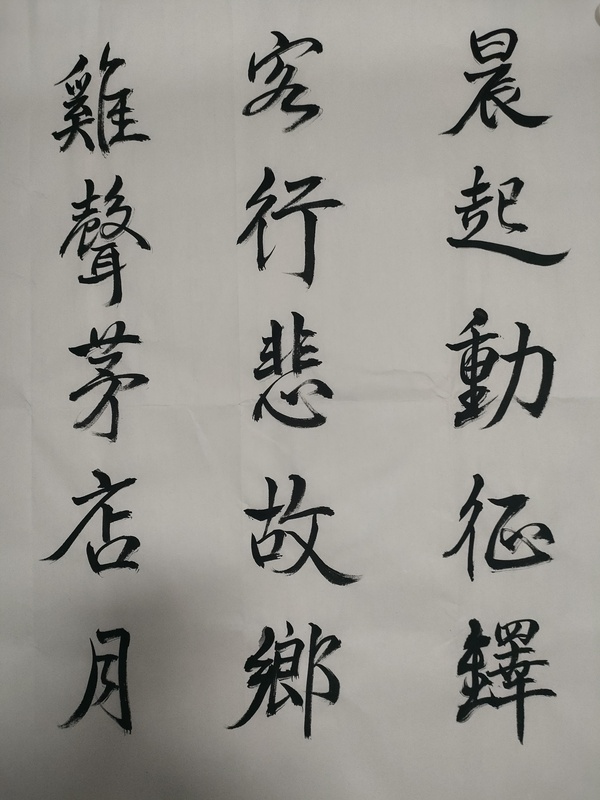 晨起動征鐸
客行悲故鄉
雞聲茅店月